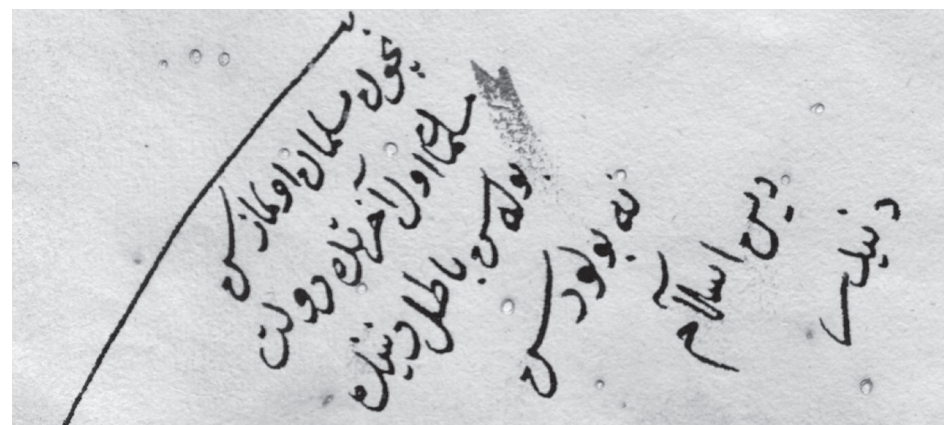 نیچون مسلمان اولمازسن
مسلمان اول آخرتنك دولت
بوله سن باطل دینك
نه بولورسن
دین اسلام